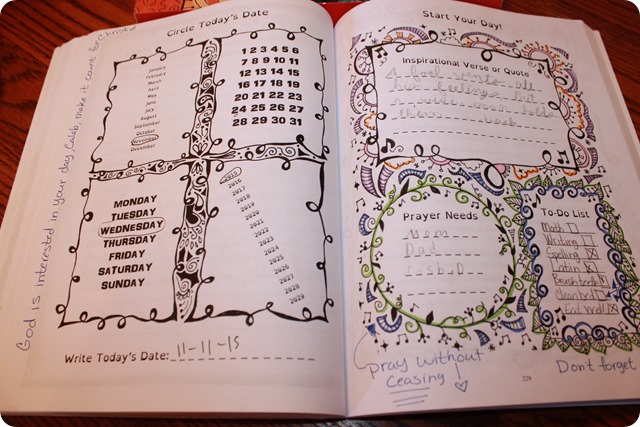 Circle Today's Date
God is interested in your day, Caleb, make it count for Christ
January
February
March
April
May
June
July
August
September
October
November
December
1 2 3 4 5 6
7 8 9 10 11
12 13 14 15
16 17 18 19
20 21 22 23
24 25 26 27
28 29 30 31
MONDAY
TUESDAY
WEDNESDAY
THURSDAY
FRIDAY
SATURDAY
SUNDAY
2015
2016
2017
2018
2019
2020
2021
2022
2023
2024
2025
2026
2027
2028
2029
Write Today's Date: 11-11-15
Start Your Day!
Inspirational Verse or Quote
A fool vents all
his feelings but
a wise man holds
them back
Prayer Needs
Mom
Dad
To-Do List
Math
Writing
Spelling
Latin
Brush teeth
Clean bed
Eat Well
Pray without
Ceasing
229
Don't forget